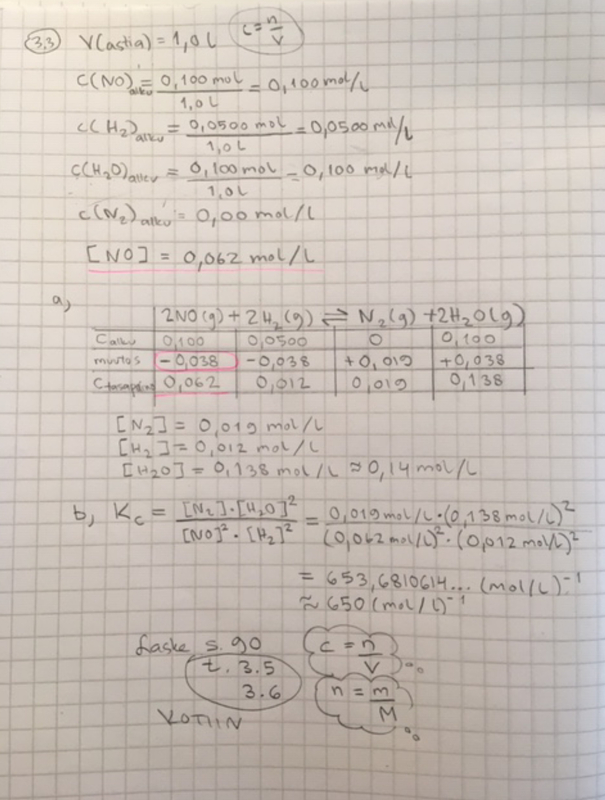 3.3 V(astia) = 1,0 L c = n/V
c(NO)alku = 0,100 mol / 1,0 L = 0,100 mol/L
c(H₂)alku = 0,0500 mol / 1,0 L = 0,0500 mol/L
c(H₂O)alku = 0,100 mol / 1,0 L = 0,100 mol/L
c(N₂)alku = 0,00 mol/L
[NO] = 0,062 mol/L
a, 2NO(g) + 2H₂(g) ⇌ N₂(g) + 2H₂O(g)
Calku 0,100 0,0500 0 0,100
muutos -0,038 -0,038 +0,019 +0,038
Ctasapaino 0,062 0,012 0,019 0,138
[N₂] = 0,019 mol/L
[H₂] = 0,012 mol/L
[H2O] = 0,138 mol/L ≈ 0,14 mol/L
b, Kc = [N₂]·[H₂O]² / [NO]²·[H₂]² = 0,019 mol/L·(0,138 mol/L)² / (0,062 mol/L)²·(0,012 mol/L)²
= 653,6810614... (mol/L)⁻¹
≈ 650 (mol/L)⁻¹
Laske s. 90 c = n/V
t. 3.5
3.6 n = m/M
KOTIIN